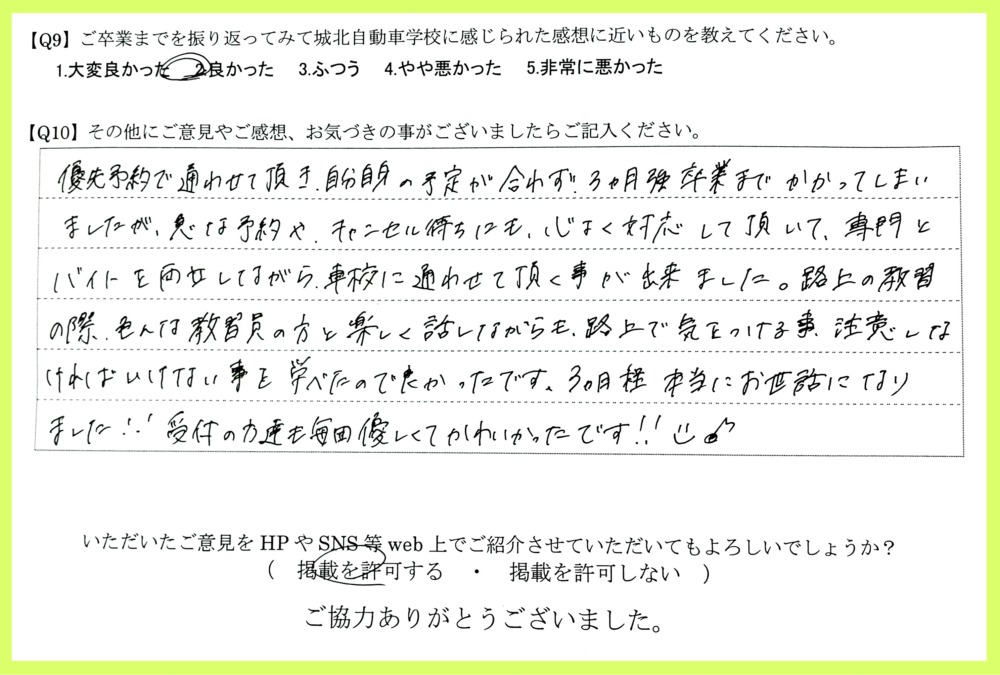 【Q9】ご卒業までを振り返ってみて城北自動車学校に感じられた感想に近いものを教えてください。
1.大変良かった 2.良かった 3.ふつう 4.やや悪かった 5.非常に悪かった
【Q10】その他にご意見やご感想、お気づきの事がございましたらご記入ください。
優先予約で通わせて頂き、自分自身の予定が合わず、3ヵ月強卒業までかかってしまい
ましたが、急な予約や、キャンセル待ちにも、心よく対応して頂いて、専門と
バイトを両立しながら、車校に通わせて頂く事が出来ました。路上の教習
の際、色んな教習員の方と楽しく話しながらも、路上で気をつける事、注意しな
ければいけない事を学べたので良かったです。3ヵ月程本当にお世話になり
ました!! 受付の方達も毎回優しくてかわいかったです!!
いただいたご意見をHPやSNS等web上でご紹介させていただいてもよろしいでしょうか?
( 掲載を許可する ・ 掲載を許可しない )
ご協力ありがとうございました。